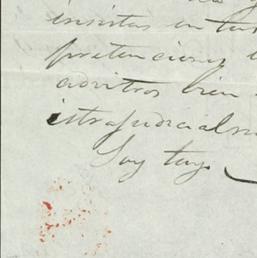 insistas en tus
pretenciones
advitros bien
istrajudicialm
Soy tuyo